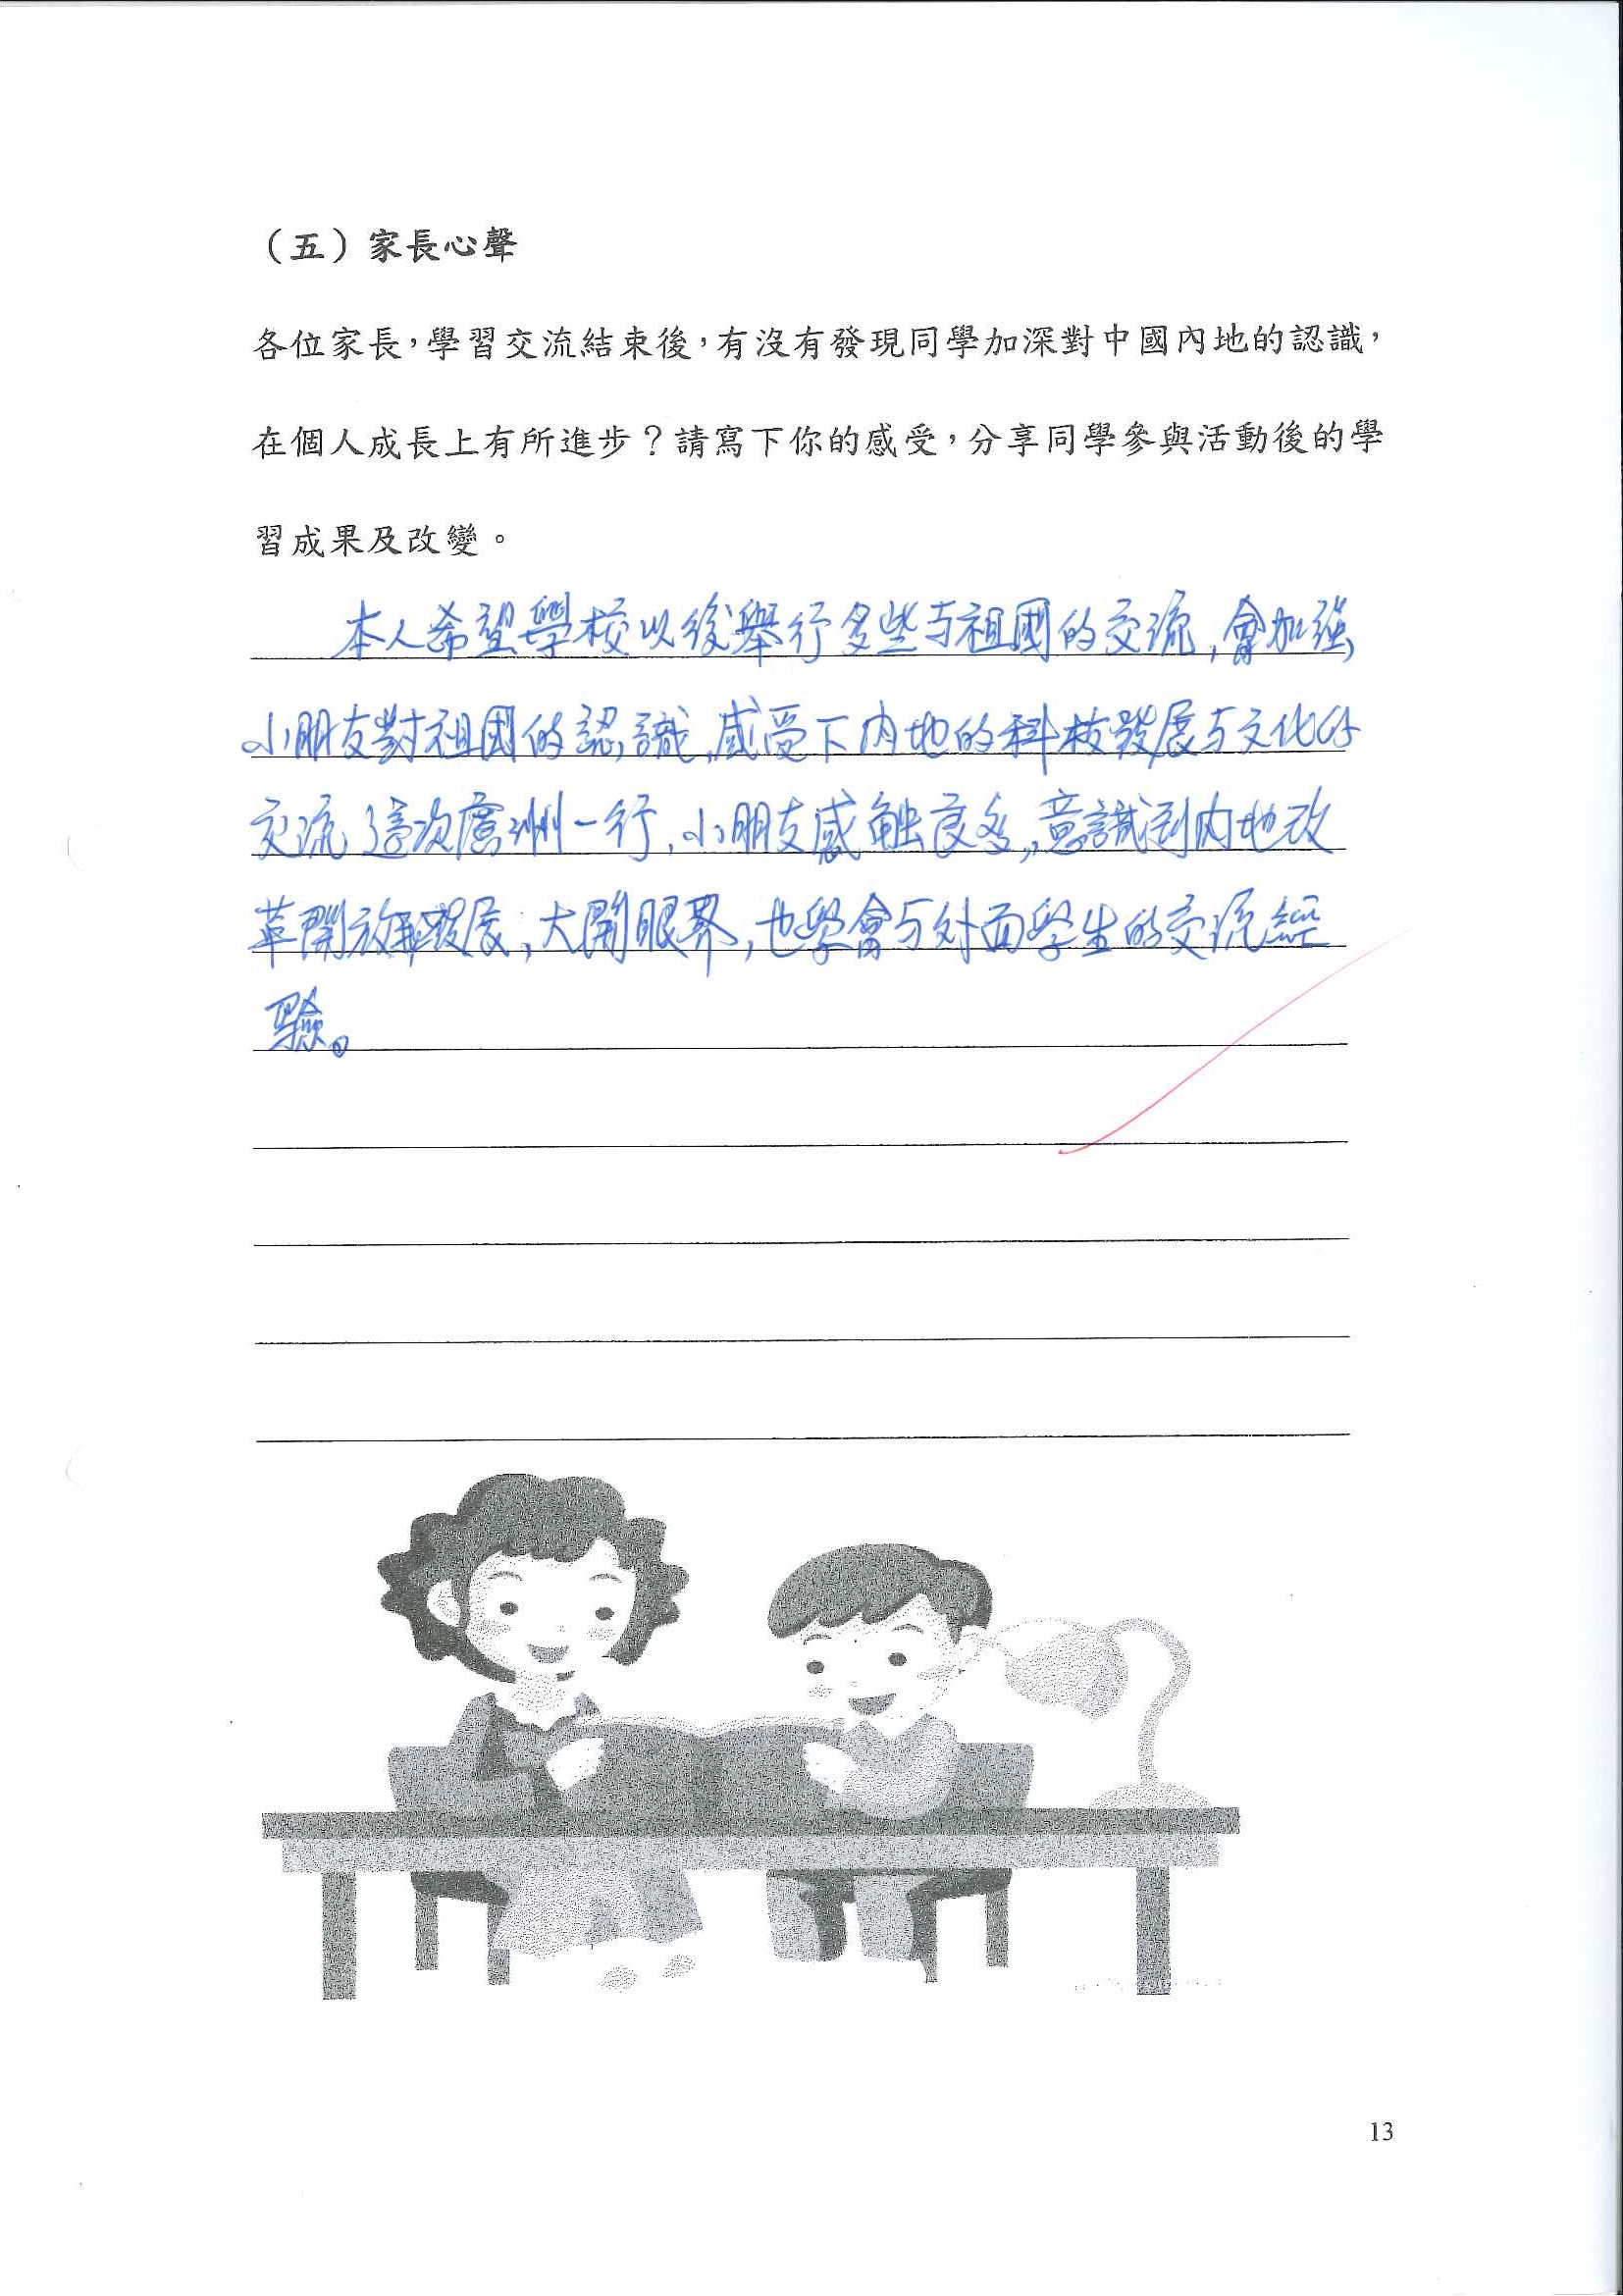 （五）家長心聲
各位家長，學習交流結束後，有沒有發現同學加深對中國內地的認識，
在個人成長上有所進步？請寫下你的感受，分享同學參與活動後的學
習成果及改變。
本人希望學校以後舉行多些与祖國的交流，會加強
小朋友對祖國的認識，感受下內地的科技發展与文化的
交流，這次廣州一行，小朋友感触良多，意識到內地改
革開放發展，大開眼界，也學會与外面學生的交流經
驗。
13